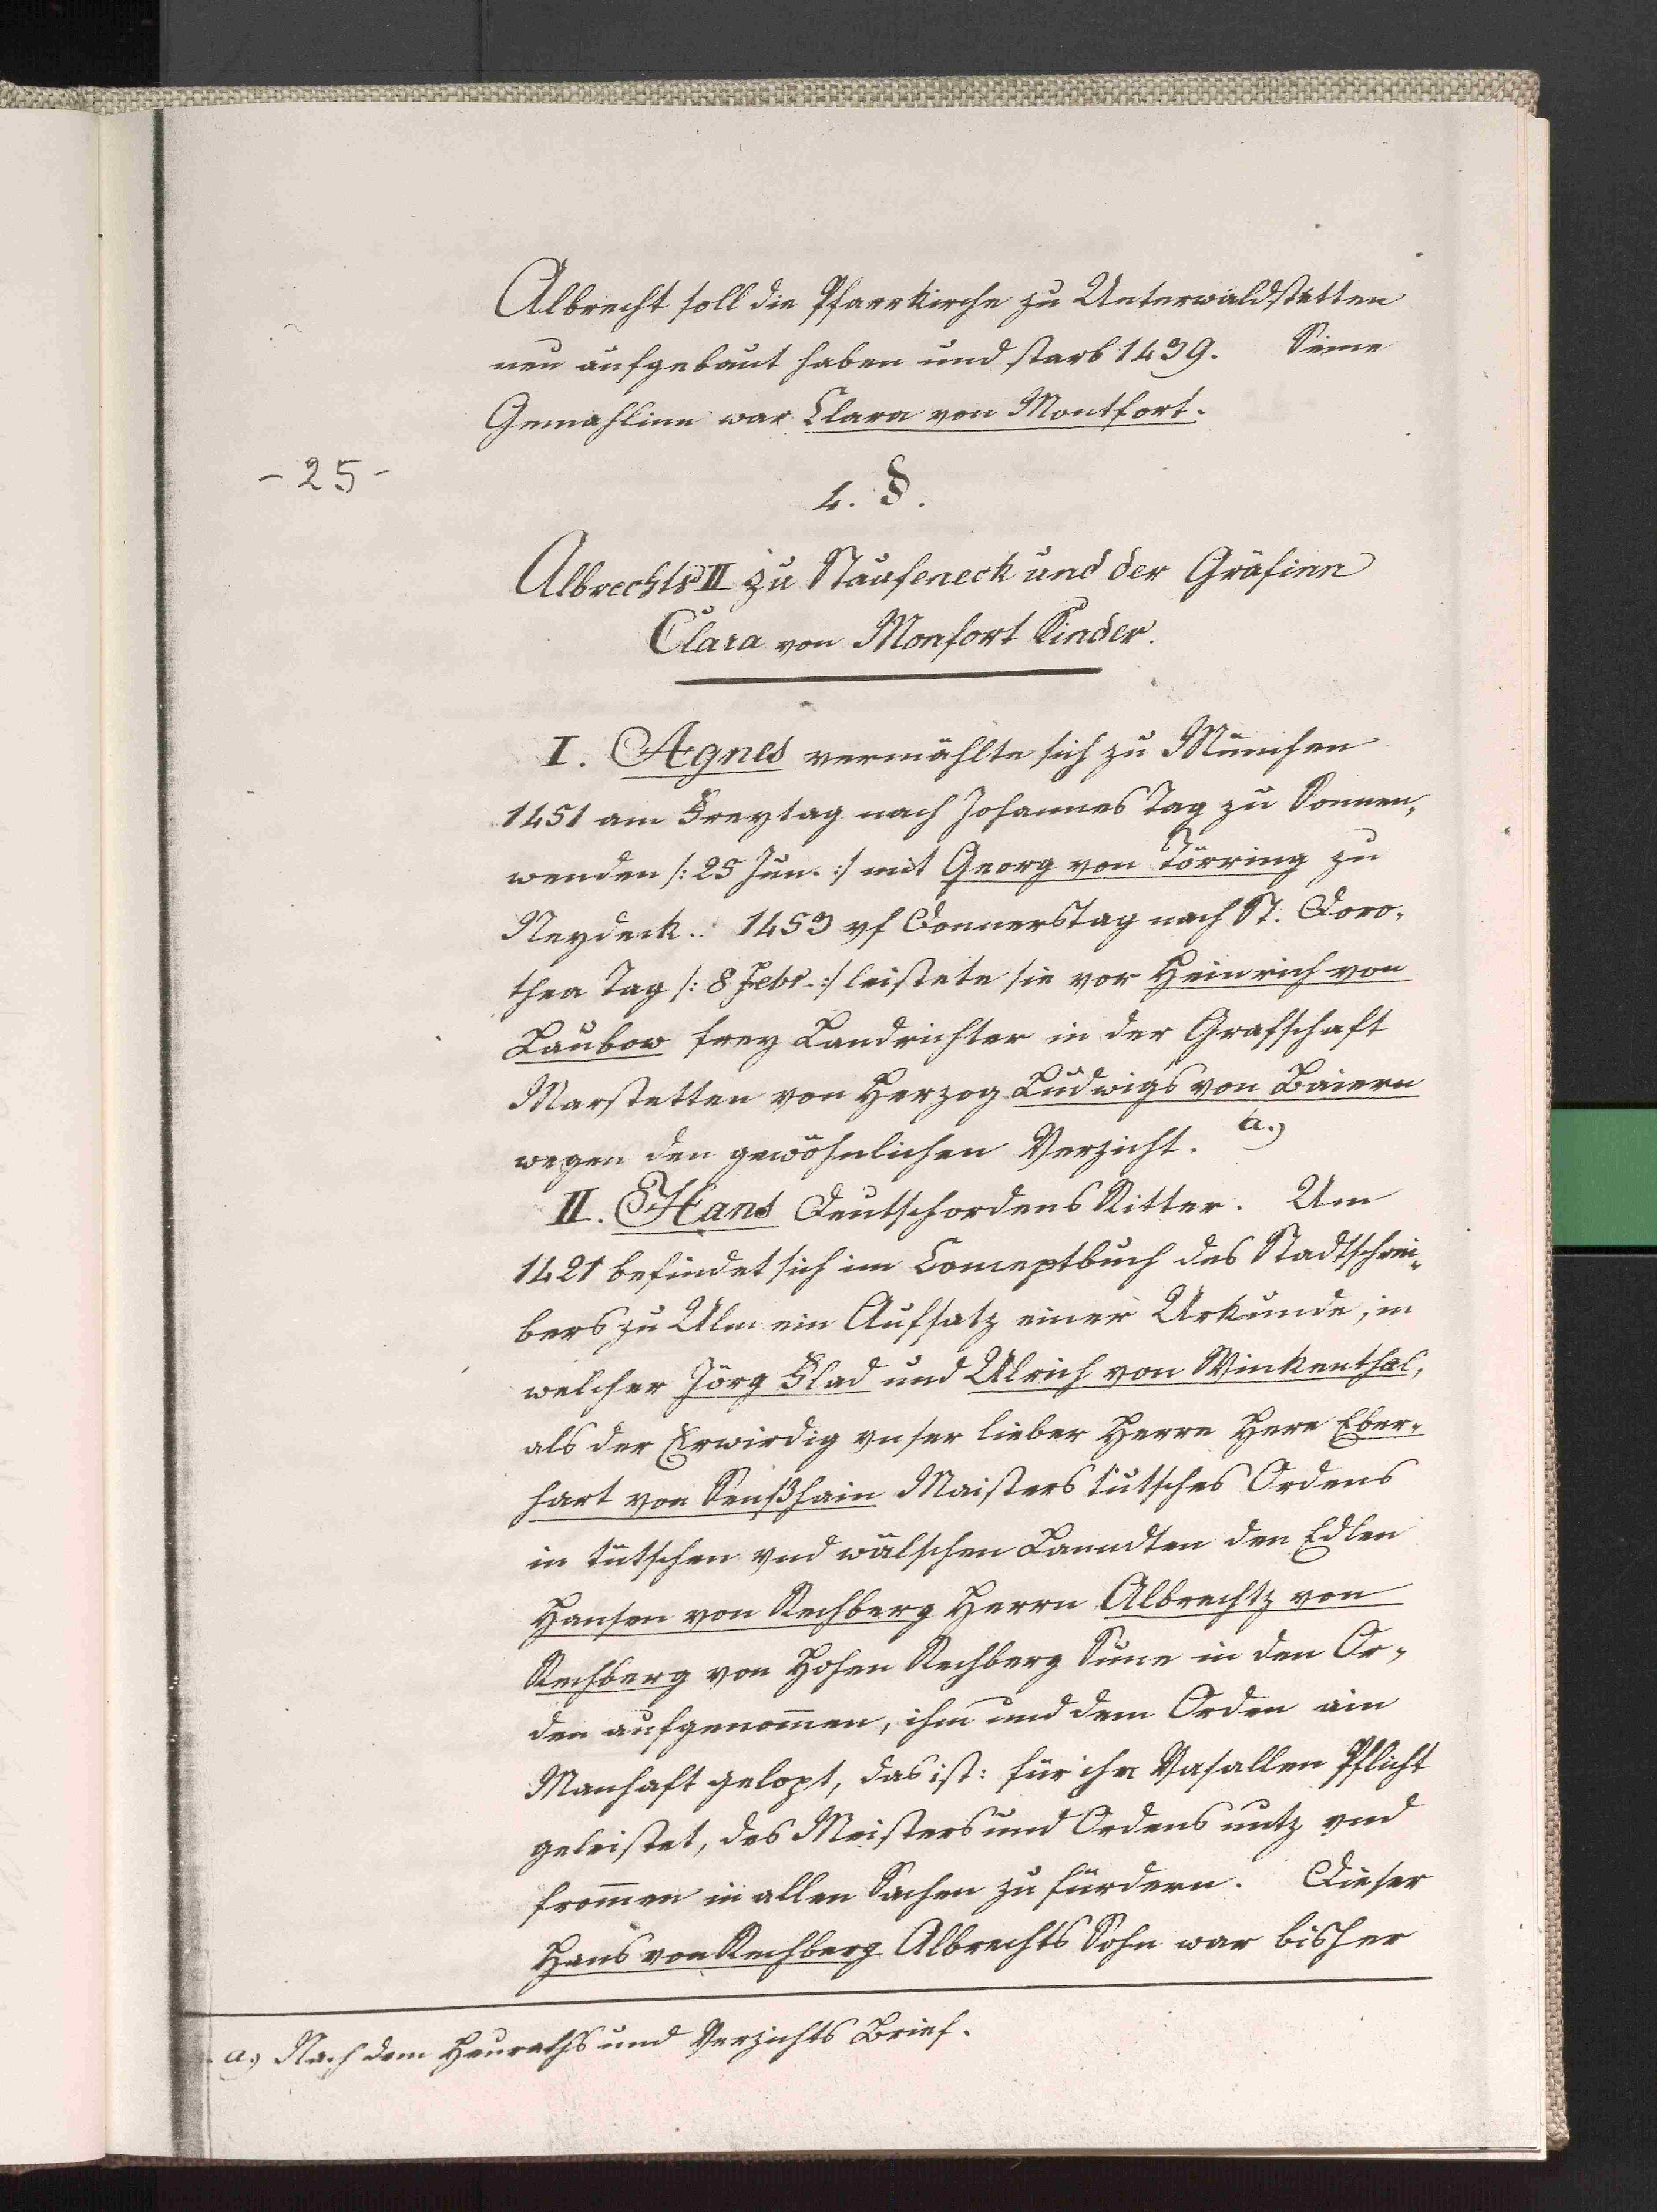 Albrecht soll die Pfarrkirche zu Unterwaldstetten
neu aufgebaut haben und starb 1439. Seine
Gemahlinn war Clara von Montfort.
- 25 -
4. §.
Albrechts II zu Staufeneck und der Gräfinn
Clara von Monfort Kinder.
I. Agnes vermählte sich zu München
1451 am Freytag nach Johannes Tag zu Sonnen„
wenden /: 25 Jun. :/ mit Georg von Törring zu
Neydeck. 1453 vf Donnerstag nach St. Doro„
thea Tag /: 8 Febr. :/ leistete sie vor Heinrich von
Laubow frey Landrichter in der Grafschaft
Marstetten von Herzog Ludwigs von Baiern
wegen den gewöhnlichen Verzicht. a.)
II. Hans Deutschordens Ritter. Um
1421 befindet sich im Conceptbuch des Stadtschrei„
bers zu Ulm ein Aufsatz einer Urkunde, in
welcher Jörg Flad und Ulrich von Winkenthal,
als der Erwirdig vnser lieber Herre Here Eber„
hart von Senßhain Maisters tütsches Ordens
in tütschen vnd wälschen Lanndten den Edlen
Hansen von Rechberg Herrn Albrechtz von
Rechberg von Hohen Rechberg Sune in den Or„
den aufgenom̄en, ihm und dem Orden ain
Manhaft gelopt, das ist: für ihn Vasallen Pflicht
geleistet, des Meisters und Ordens nutz vnd
from̄en in allen Sachen zu fürdern. Dieser
Hans von Rechberg Albrechts Sohn war bisher
a.) Nach dem Heuraths und Verzichts Brief.